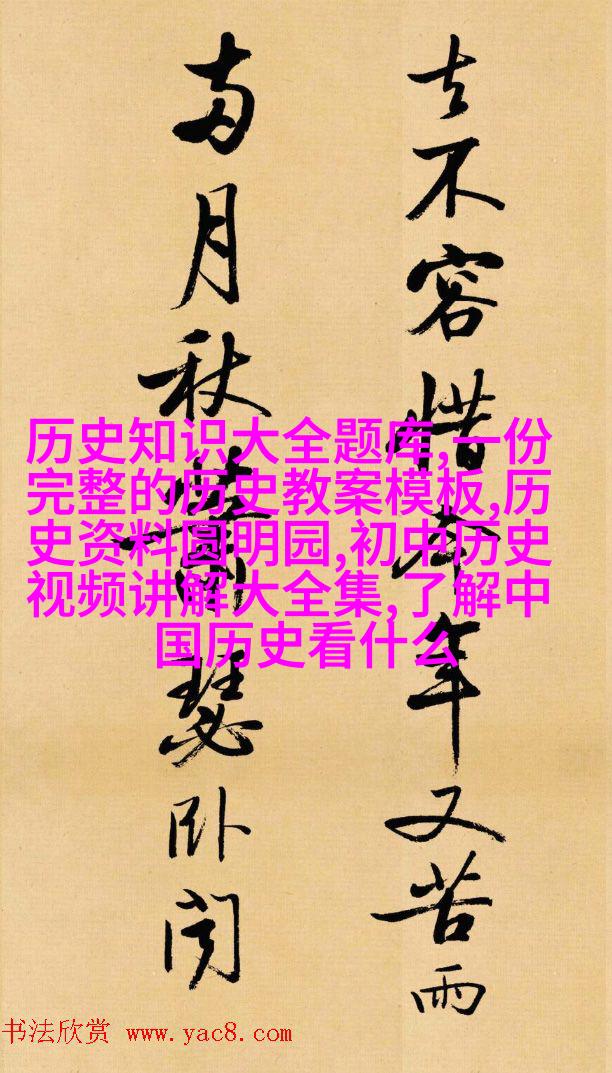 去不容惜今年又苦雨
兩月秋蕭瑟卧聞
历史知识大全题库,一份
完整的历史教案模板,历
史资料圆明园,初中历史
视频讲解大全集,了解中
国历史看什么
书法欣赏 www.yac8.com